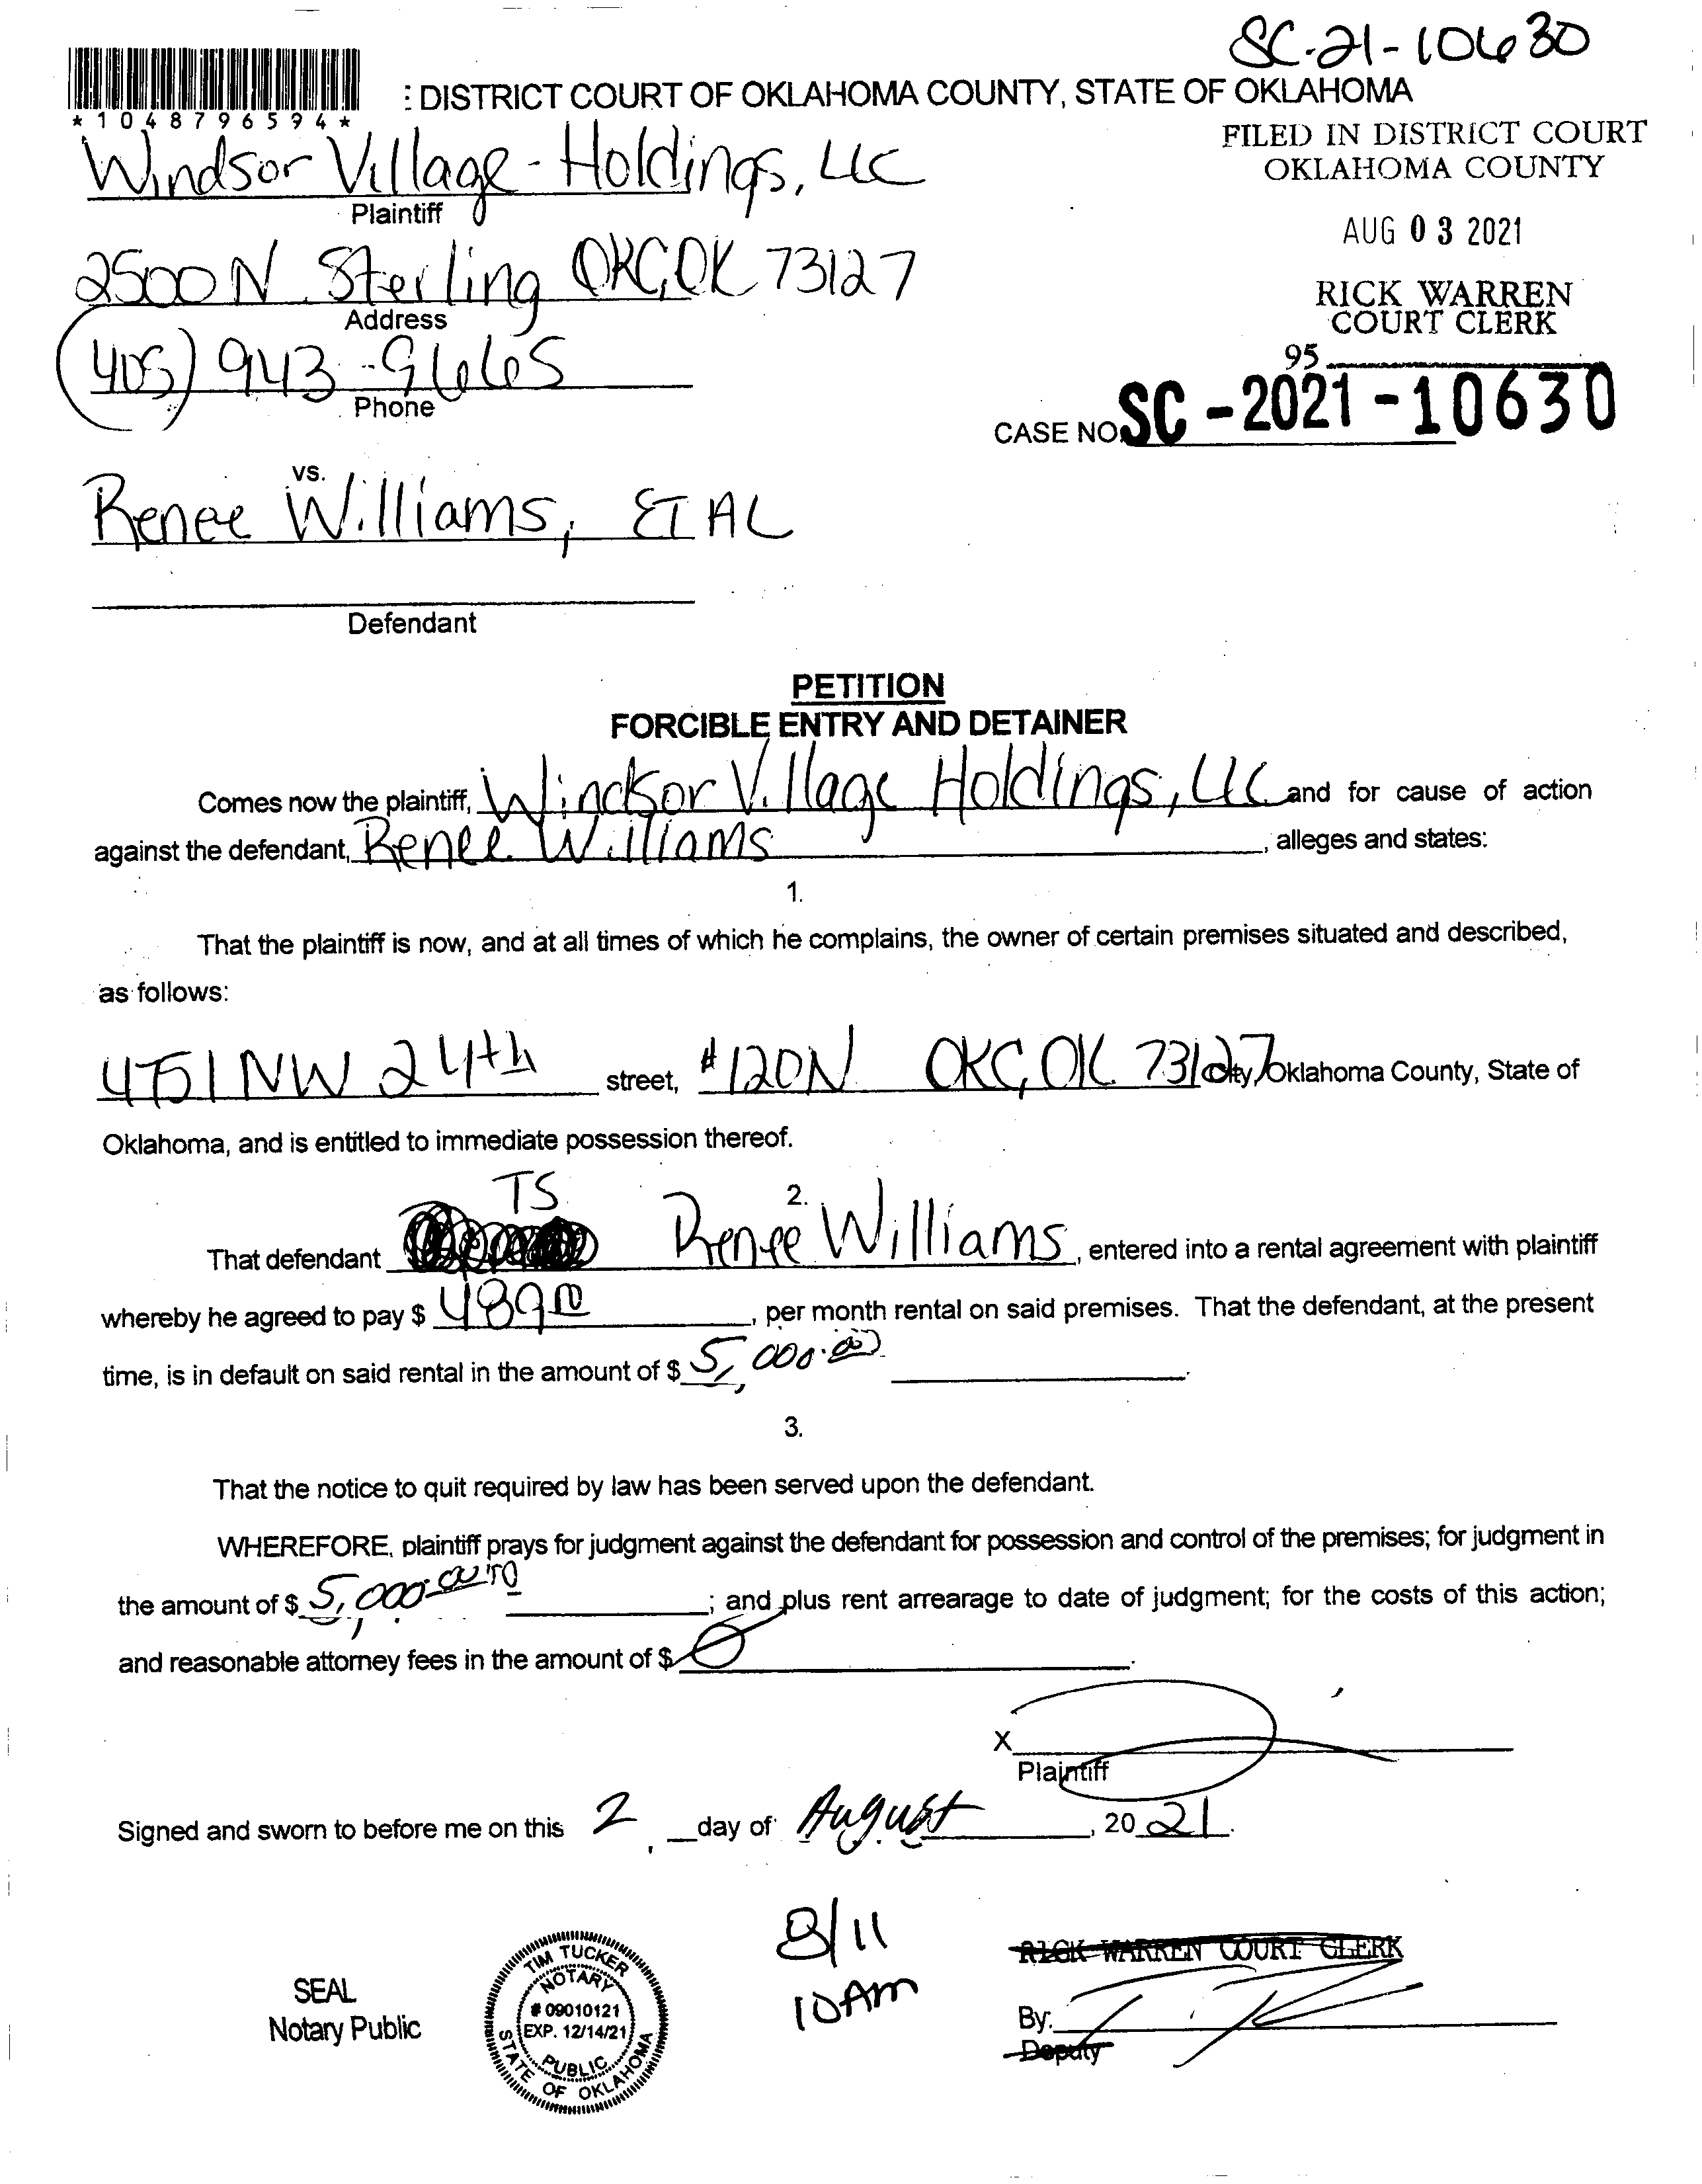 SC-21-10630
: DISTRICT COURT OF OKLAHOMA COUNTY, STATE OF OKLAHOMA
*1048796594*
FILED IN DISTRICT COURT
OKLAHOMA COUNTY
Windsor Village - Holdings, LLC
Plaintiff
AUG 03 2021
2500 N Sterling OKC, OK 73127
Address
RICK WARREN
COURT CLERK
(405) 943-9665
Phone
95
CASE NO. SC-2021-10630
vs.
Renee Williams, ET AL
Defendant
PETITION
FORCIBLE ENTRY AND DETAINER
Comes now the plaintiff, Windsor Village Holdings, LLC and for cause of action
against the defendant, Renee Williams, alleges and states:
1.
That the plaintiff is now, and at all times of which he complains, the owner of certain premises situated and described,
as follows:
4751 NW 24th street, #120N OKC, OK 73127 City, Oklahoma County, State of
Oklahoma, and is entitled to immediate possession thereof.
TS
2.
That defendant Renee Williams, entered into a rental agreement with plaintiff
whereby he agreed to pay $ 489, per month rental on said premises. That the defendant, at the present
time, is in default on said rental in the amount of $ 5,000.00.
3.
That the notice to quit required by law has been served upon the defendant.
WHEREFORE, plaintiff prays for judgment against the defendant for possession and control of the premises; for judgment in
the amount of $ 5,000.00; and plus rent arrearage to date of judgment; for the costs of this action;
and reasonable attorney fees in the amount of $ 0.
X
Plaintiff
Signed and sworn to before me on this 2 day of August, 2021.
8/11
10 AM
RICK WARREN COURT CLERK
SEAL
Notary Public
TIM TUCKER
NOTARY
# 09010121
EXP. 12/14/21
PUBLIC
STATE OF OKLAHOMA
By:
Deputy